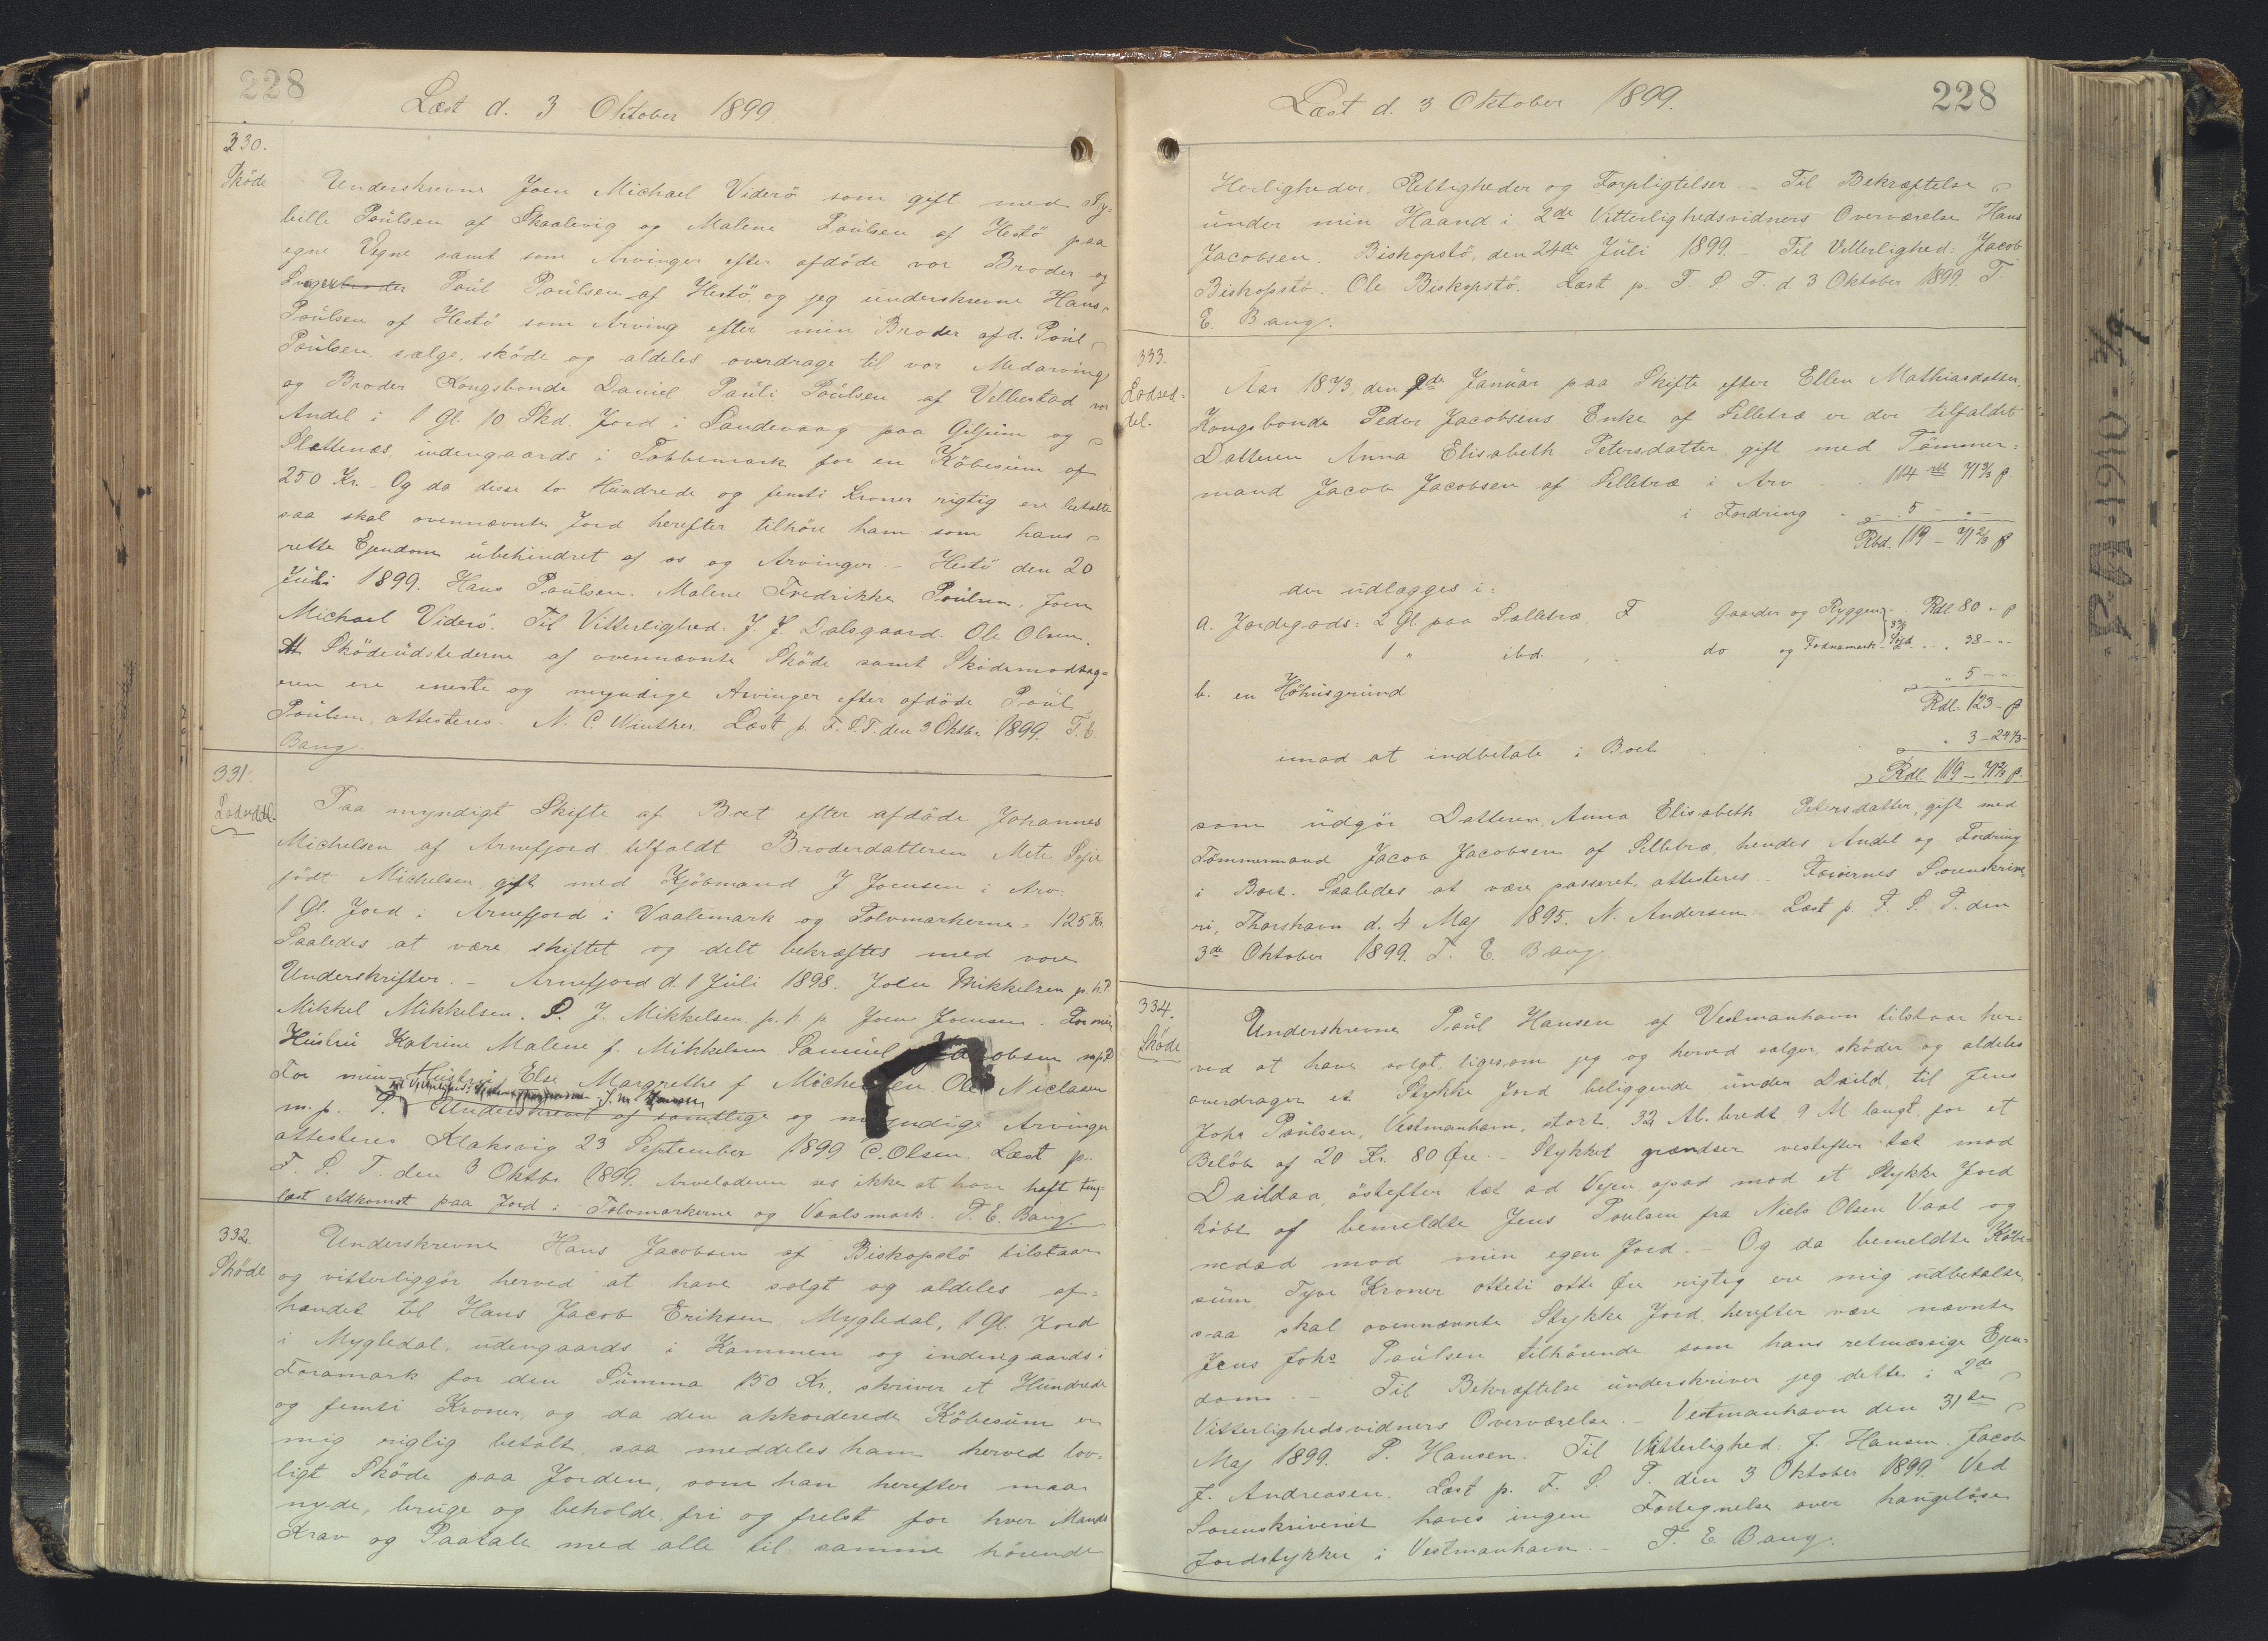 228
Læst d. 3 Oktober 1899.
330.
Sköde
Underskrevne Joen Michael Viderö som gift med Sy=
bille Poulsen af Skaalevig og Malene Poulsen af Hestö paa
egne Vegne samt som Arvinger efter afdöde vor Broder og
Svogerbroder Poul Poulsen af Hestö, og jeg underskrevne Hans
Poulsen af Hestö som Arving efter min Broder afd. Poul
Poulsen, sælge, sköde og aldeles overdrage til vor Medarving
og Broder Kongsbonde Daniel Pauli Poulsen af Velbestad vor
Andel i 1 Gl. 10 Skd. Jord i Sandevaag paa Giljum og
Slettenæs, indengaards i Tobbemark for en Köbesum af
250 Kr. – Og da disse to Hundrede og femti Kroner rigtig ere betalte
saa skal ovennævnte Jord herefter tilhöre ham som hans
rette Ejendom ubehindret af os og Arvinger. – Hestö den 20
Juli 1899. Hans Poulsen. Malene Fredrikke Poulsen. Joen
Michael Viderö. Til Vitterlighed. J. J. Dalsgaard. Ole Olsen.
At Sködeudstederne af ovennævnte Sköde samt Sködemodtag=
eren ere eneste og myndige Arvinger efter afdöde Poul
Poulsen, attesteres. N. C. Winther. Læst p. F. S. T. den 3 Oktbr. 1899. T. E.
Bang.
331.
Lodseddel.
Paa myndigt Skifte af Boet efter afdöde Johannes
Michelsen af Arnefjord tilfaldt Broderdatteren Mete Sofie
født Michelsen gift med Kjöbmand J Joensen i Arv.
1 Gl. Jord i Arnefjord i Vaalemark og Tolvmarkerne = 125 Kr.
Saaledes at være skiftet og delt bekræftes med vore
Underskrifter. – Arnefjord d. 1 Juli 1898. Joen Mikkelsen p. h. P.
Mikkel Mikkelsen. S. J. Mikkelsen p. h. p Joen Joensen. For min
Hustru Katrine Malene f. Mikkelsen Samuel Jacobsen m. p. P.
For min Hustru Else Margrethe f Michelsen Ole Niclasen
m. p. P. Underskrevet af samtlige og myndige Arvinger
attesteres Klaksvig 23 September 1899 C. Olsen. Læst p.
F. S. T. den 3 Oktbr. 1899. Arveladeren ses ikke at have haft ting-
læst Adkomst paa Jord i Tolvmarkerne og Vaalsmark. T. E. Bang.
332.
Sköde
Underskrevne Hans Jacobsen af Biskopstö tilstaar
og vitterliggör herved at have solgt og aldeles af=
hændet til Hans Jacob Eriksen, Mygledal, 1 Gl. Jord
i Mygledal, udengaards i Kammen og indengaards i
Foramark for den Summa 150 Kr, skriver et Hundrede
og femti Kroner, og da den akkorderede Köbesum er
mig rigtig betalt, saa meddeles ham herved lov-
ligt Sköde paa Jorden, som han herefter maa
nyde, bruge og beholde, fri og frelst for hver Mands
Krav og Paatale med alle til samme hörende
228
Læst d. 3 Oktober 1899.
Herligheder, Rettigheder og Forpligtelser. – Til Bekræftelse
under min Haand i 2de Vitterlighedsvidners Overværelse Hans
Jacobsen. Biskopstö, den 24de Juli 1899. – Til Vitterlighed: Jacob
Biskopstö. Ole Biskopstö. Læst p. F. S. T. d 3 Oktober 1899. T.
E. Bang.
333.
Lodsed=
del.
Aar 1873, den 2de Januar paa Skifte efter Ellen Mathiasdatter,
Kongsbonde Peder Jacobsens Enke af Selletræ er der tilfaldet
Datteren Anna Elisabeth Petersdatter gift med Tömmer=
mand Jacob Jacobsen af Selletræ i Arv . . 114 rdl 71 2/3 ß
i Fordring . . 5 – " –
Rbd. 119 – 71 2/3 ß
der udlægges i:
a. Jordegods: 2 Gl. paa Selletræ, F Gaarder og Ryggen . . Rdl 80 – ß
1 " ibd. do og Fornamark . . 38 – "
b. en Höhusgrund " 5 – "
Rdl. 123 – ß
imod at indbetale i Boet . . " 3 – 24 1/3
Rdl. 119 – 71 2/3 ß.
som udgör Datteren, Anna Elisabeth Petersdatter, gift med
Tömmermand Jacob Jacobsen af Selletræ, hendes Andel og Fordring
i Boet. Saaledes at være passeret, attesteres. – Færøernes Sorenskrive
ri, Thorshavn d. 4 Maj 1895. N. Andersen. – Læst p. F. S. T. den
3de Oktober 1899. T. E. Bang.
334.
Sköde
Underskrevne Poul Hansen af Vestmanhavn tilstaar her=
ved at have solgt, ligesom jeg og herved sælger, sköder og aldeles
overdrager et Stykke Jord beliggende under Daild, til Jens
Johs Poulsen, Vestmanhavn, stort, 32 Al. bredt 9 Al langt, for et
Belöb af 20 Kr. 80 Øre. – Stykket grændser vestefter tæt mod
Daildaa, östefter tæt ad Vejen, opad mod et Stykke Jord
köbt af bemeldte Jens Poulsen fra Niels Olsen Vaal og
nedad mod min egen Jord. – Og da bemeldte Köbe
sum Tyve Kroner otteti otte Öre rigtig ere mig udbetalte,
saa skal ovennævnte Stykke Jord herefter være nævnte
Jens Johs Poulsen tilhörende som hans retmæssige Ejen=
dom. – Til Bekræftelse underskriver jeg dette i 2de
Vitterlighedsvidners Overværelse. – Vestmanhavn den 31te
Maj 1899. P. Hansen. Til Vitterlighed: J. Hansen. Jacob
J. Andreasen. Læst p. F. S. T. den 3 Oktober 1899. Ved
Sorenskriveriet haves ingen Fortegnelse over haugelöse
Jordstykker i Vestmanhavn. – T. E. Bang.